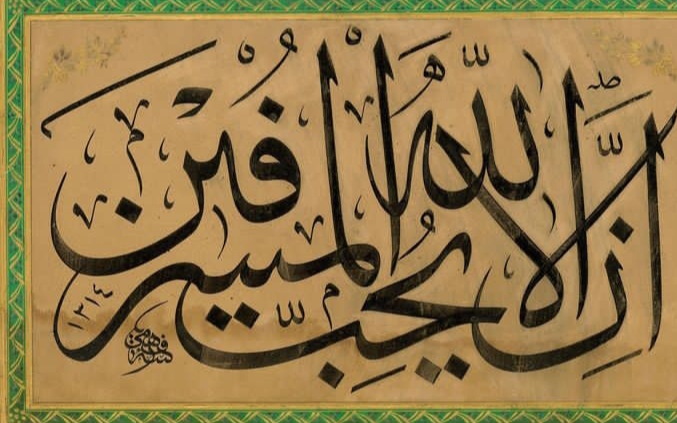 اِنَّ اللّٰهَ لَا يُحِبُّ الْمُسْرِفِينَ
١٣١٤